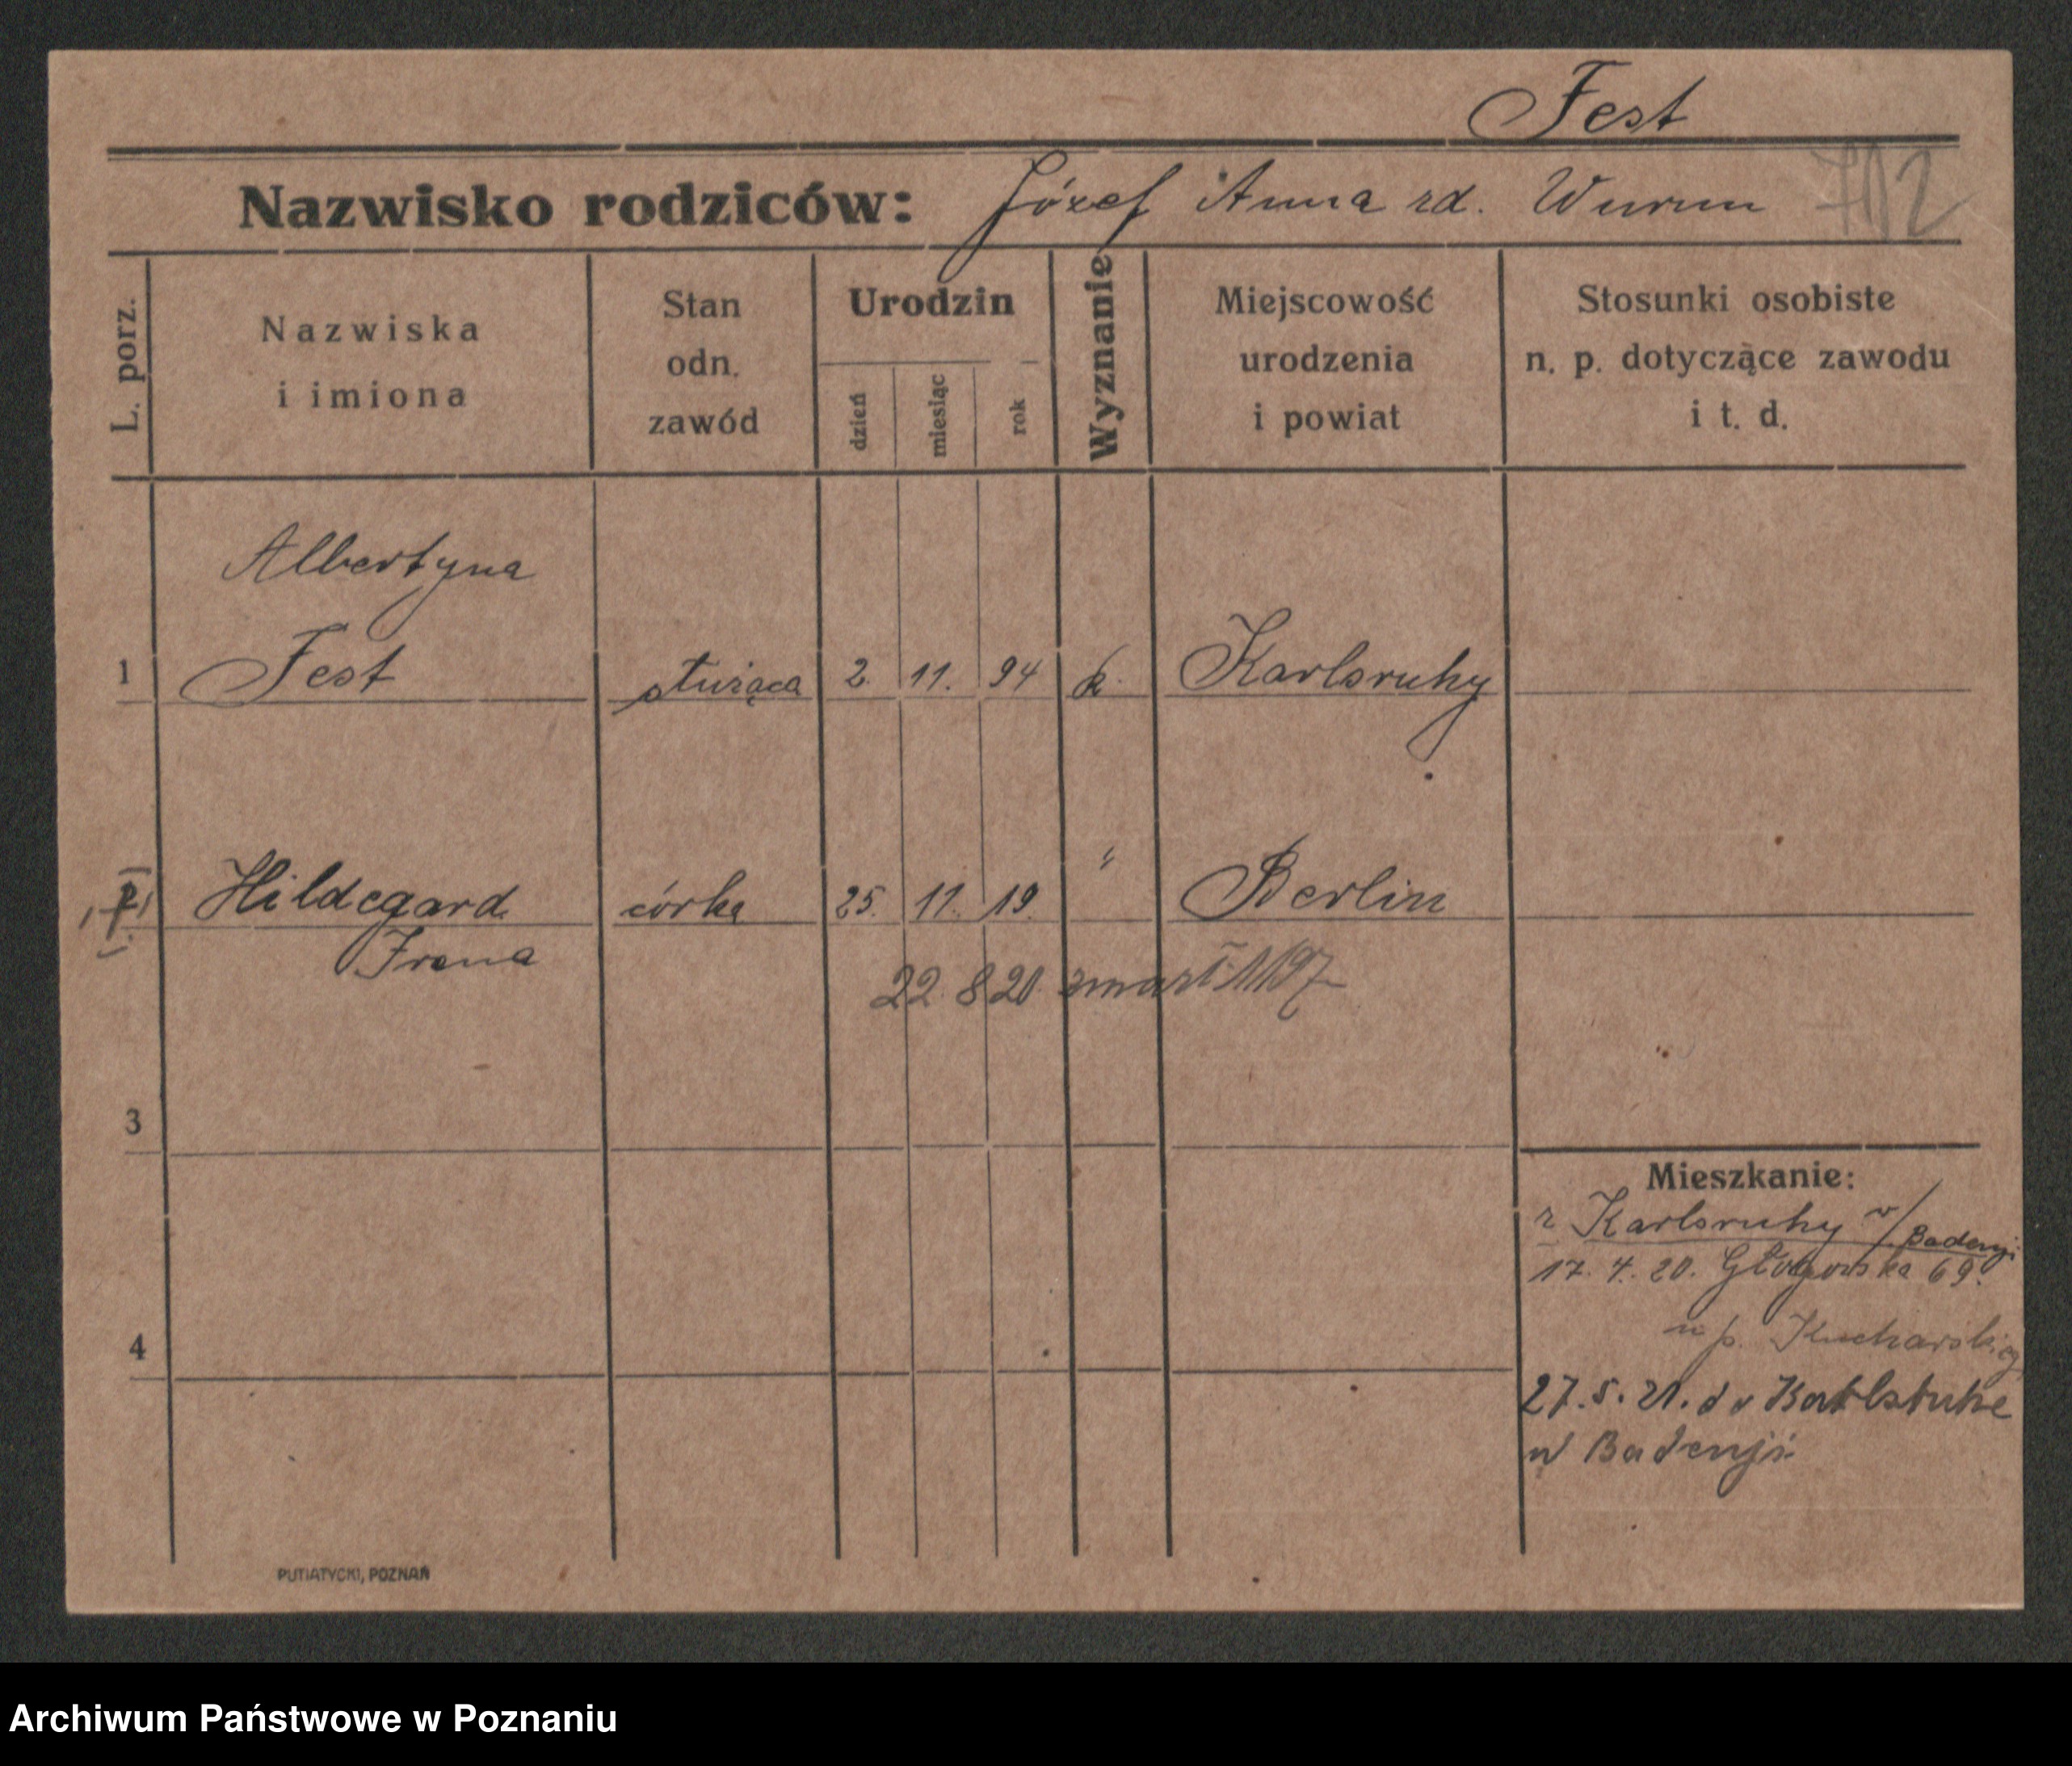 Fest
Nazwisko rodziców: Józef i Anna rd. Wurm
L. porz.
Nazwiska
i imiona
Stan
odn.
zawód
Urodzin
dzień
miesiąc
rok
Wyznanie
Miejscowość
urodzenia
i powiat
Stosunki osobiste
n. p. dotyczące zawodu
i t. d.
Albertyna
1 Fest służąca 2. 11. 94 k. Karlsruhy
Hildegard córka 25. 11. 19. " Berlin
Irena
22. 8 20 zmarł 1197
3
Mieszkanie:
z Karlsruhy w/Badenji
17. 4. 20. Głogowska 69.
u p. Kucharskiej
4
27. 5. 21. do Karlsruhe
w Badenji
PUTIATYCKI, POZNAŃ
Archiwum Państwowe w Poznaniu